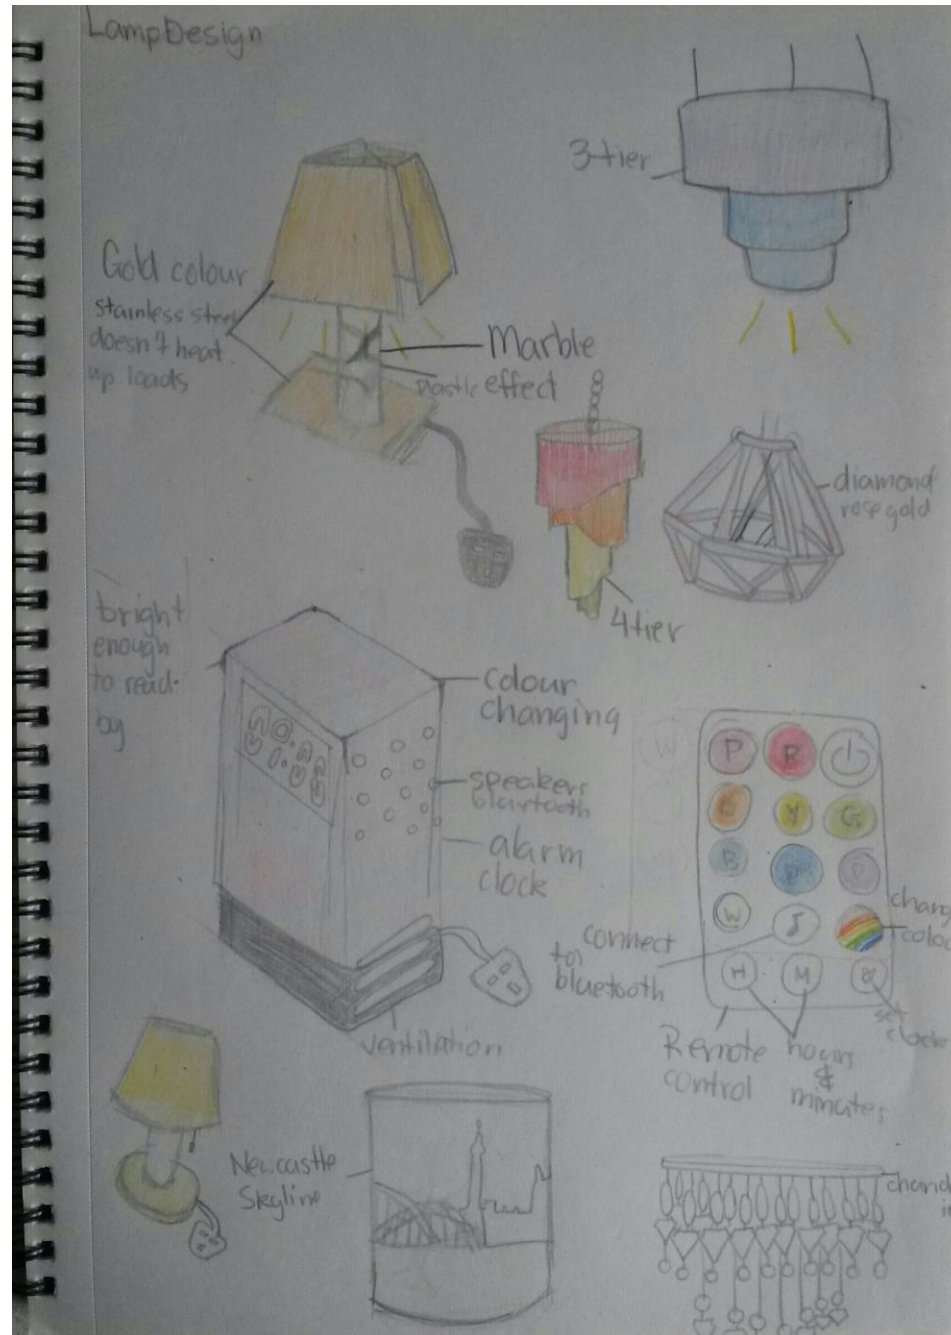 LampDesign
3-tier
Gold colour
stainless steel
doesn't heat
up loads
Marble
plastic effect
diamond
rose gold
4 tier
bright
enough
to read
by
colour
changing
speakers
bluetooth
alarm
clock
W
P R
O Y G
B P
W
H M &
change
connect
to
bluetooth
set
clock
ventilation
Remote
control
hours
&
minutes
Newcastle
Skyline